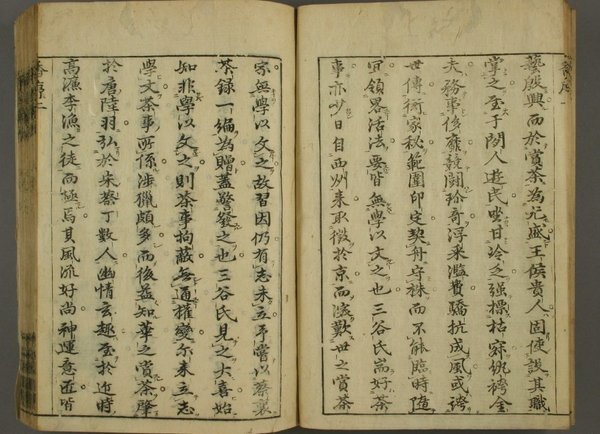 藝殷興而於賞茶為尤盛王侯貴人固使設其職
掌之至于閑人遊民坐甘冷之强標枯寂紈袴金
夫務事侈靡競鬪珍奇浮采濫費驕抗成風或誇
世傳術家秘範圍印定契舟守株而不能臨時随
宜領畧活法要皆無學以文之也三谷氏耑好茶
事亦少日自西州来取徴於京而深歎世之賞茶
家無學以文之故習因仍有志未立予嘗以蔡襄
茶録一編為贈蓋警發之也三谷氏見之大喜始
知非學以文之則茶事拘蔽無通權變尓来立志
學文茶事所係渉獵頗多而後益知華之賞茶肇
於唐陸羽弘於宋蔡丁數人幽情玄趣至於近時
高濂李漁之徒而極焉其風流好尚神運意匠皆